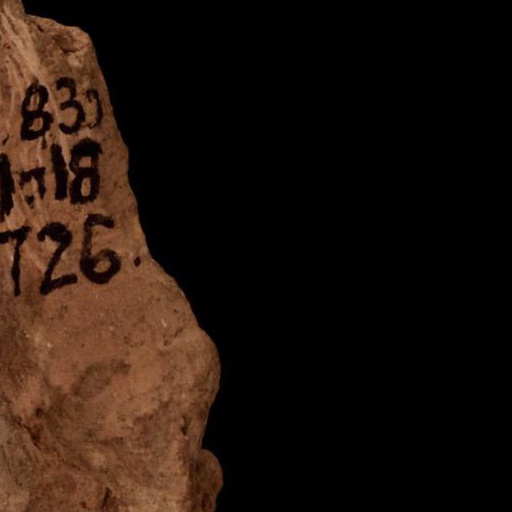 830
1-18
726.